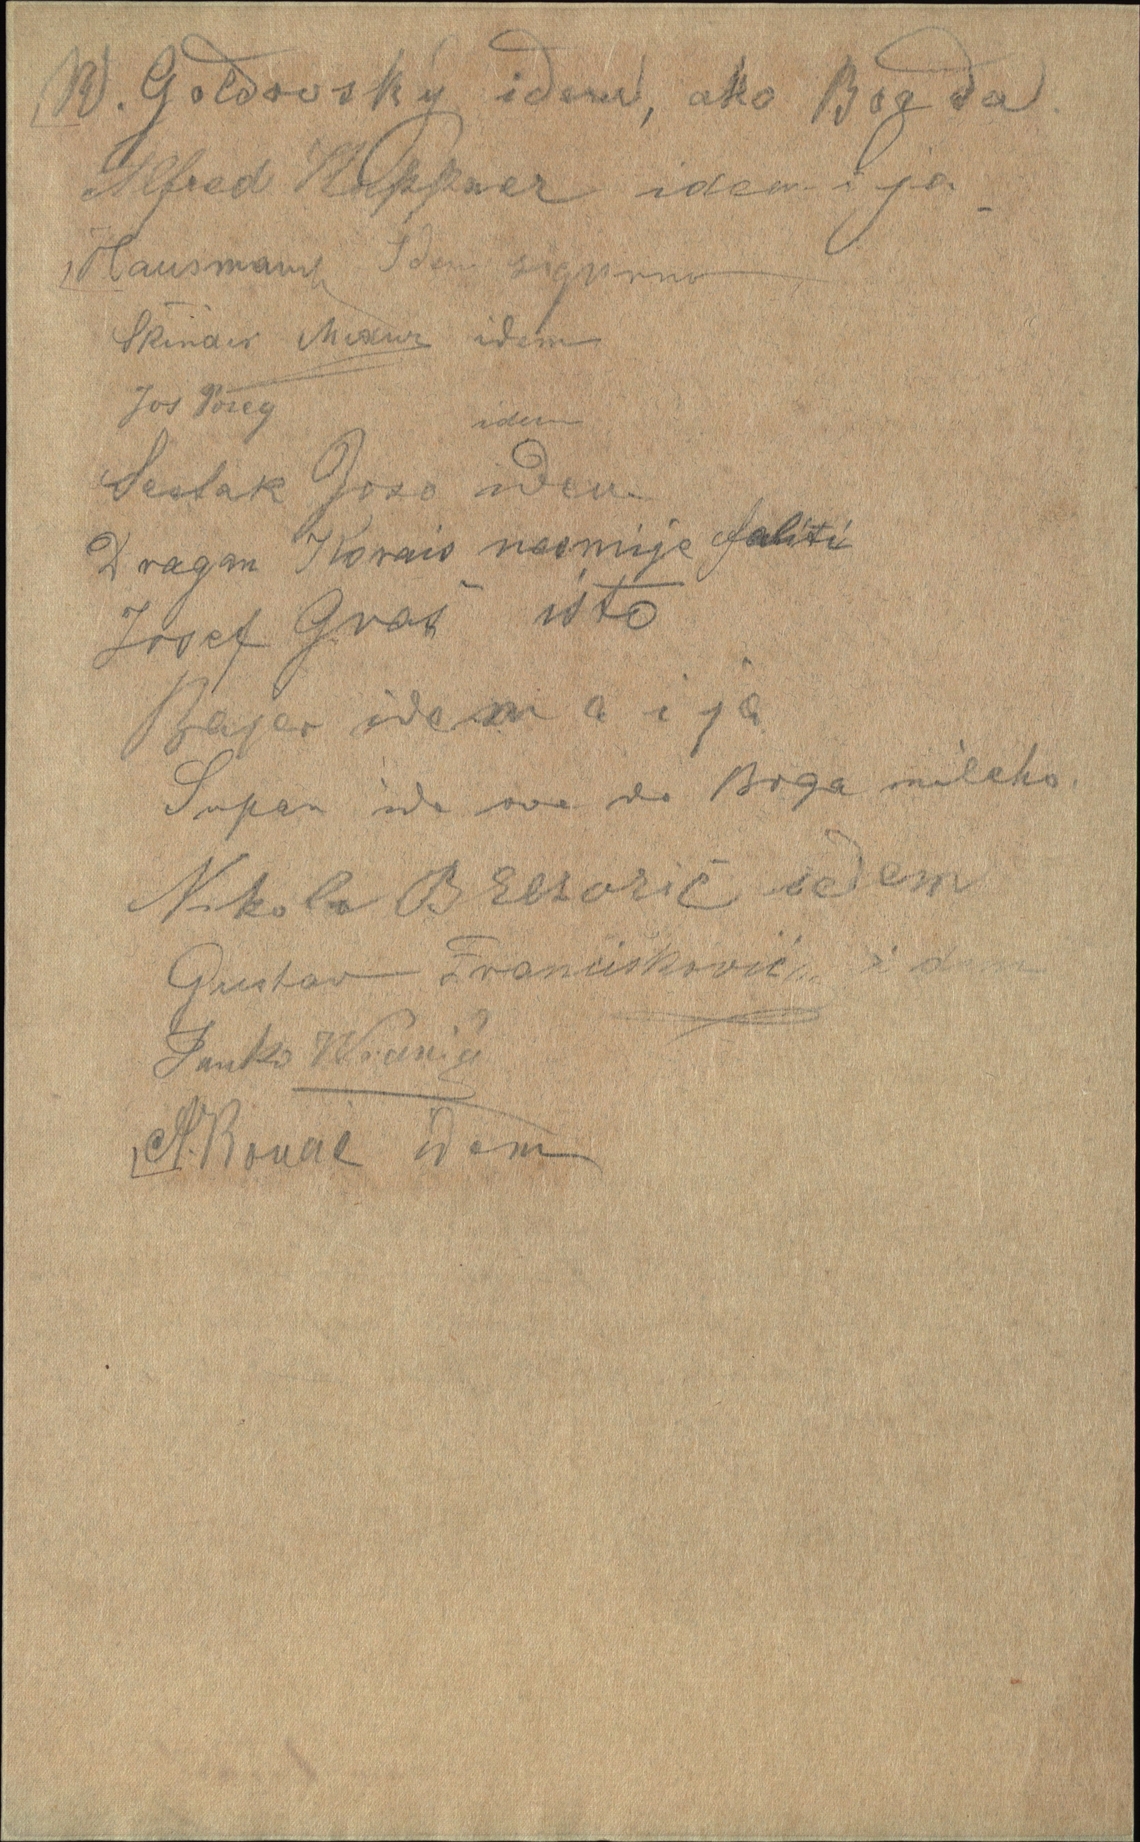 W. Goldovský idem, ako Bog da.
Alfred Kuppner idem i ja
Hausmann Idem sigurno
Skinder idem
Jos Požeg idem
Sestak Joso idem
Dragan nesmije faliti
Josef Graš isto
Bajer idem a i ja
Supan ide sve do Boga mileho.
Nikola idem
Gustav Francisković idem
Janko Wranić
A. Kovač idem